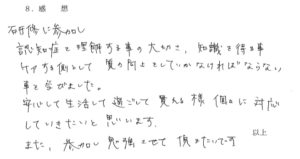 8. 感想
研修に参加し
認知症を理解する事の大切さ、知識を得る事
ケアする側として質の向上をしていかなければならない
事を学びました。
安心して生活して過ごして貰える様 個々に対応
していきたいと思います。
また、参加し勉強させて頂きたいです
以上